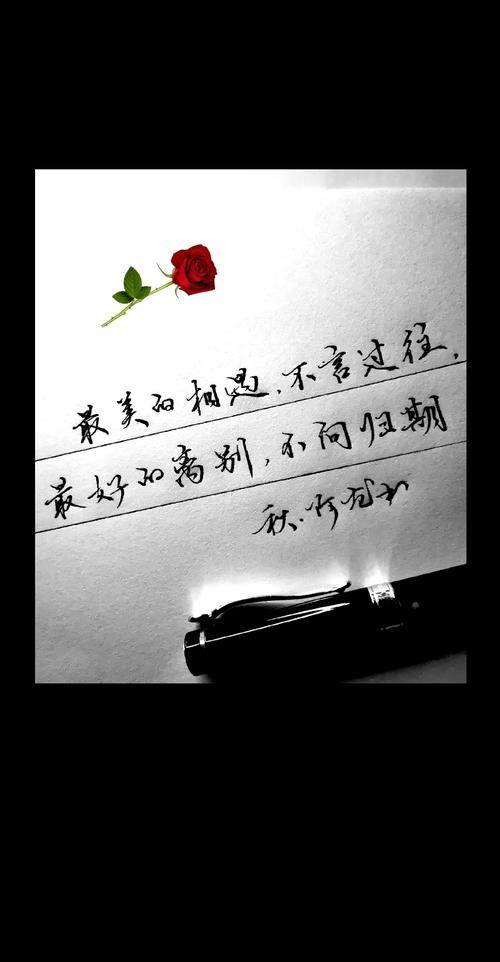 最美的相遇,不言过往,
最好的离别,不问归期
秋.